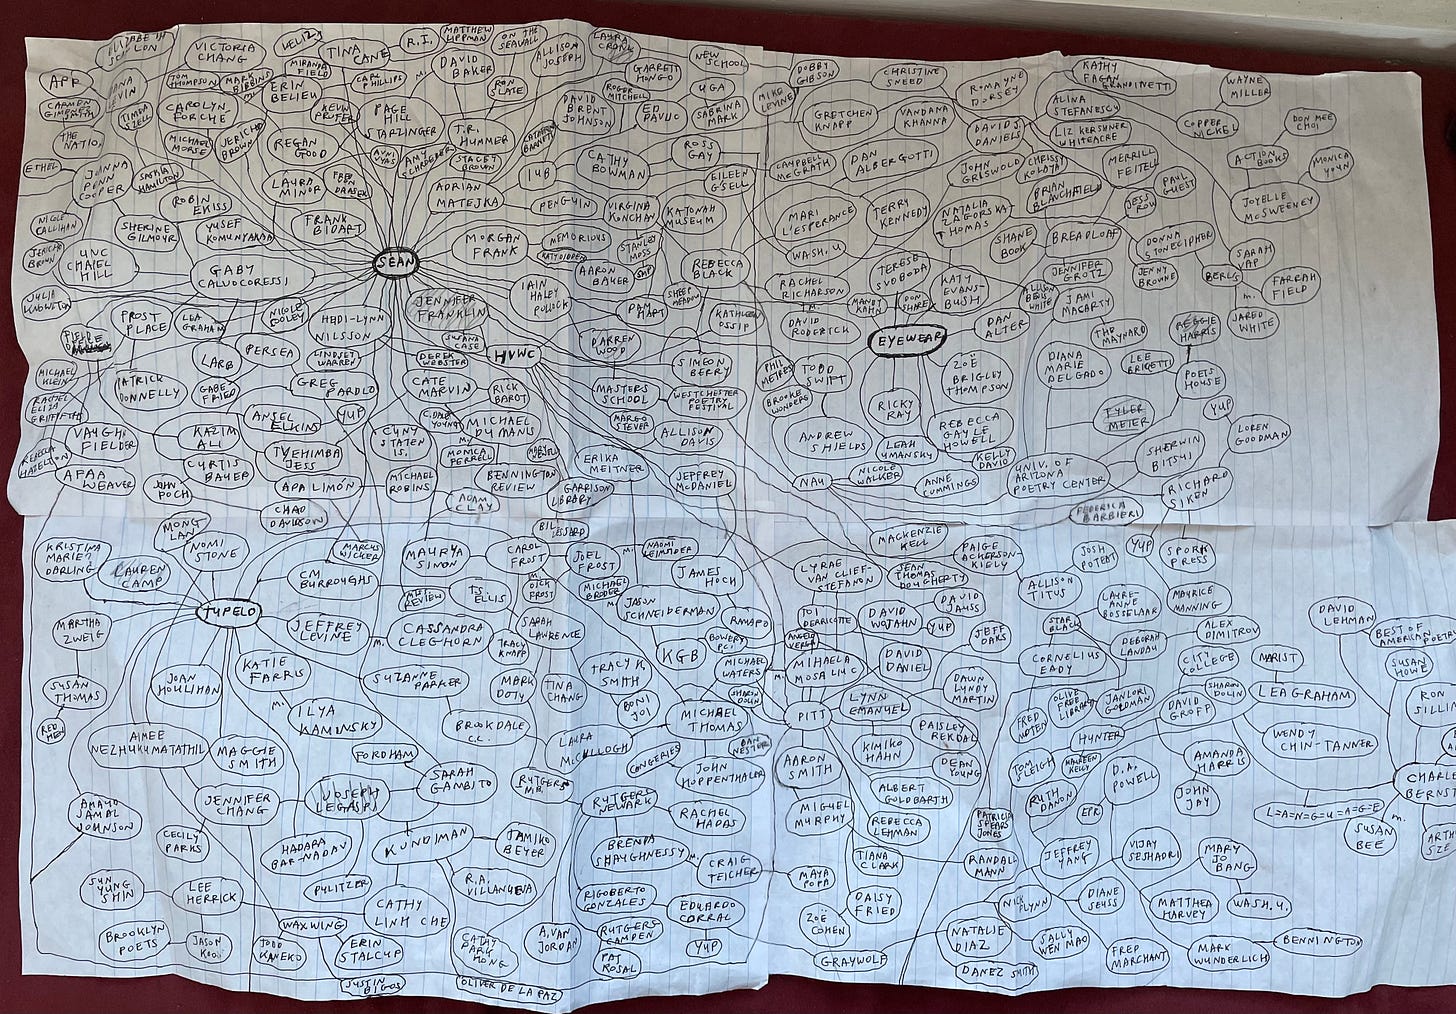 APR
VICTORIA
CHANG
VELIZ
TINA
CANE
R.I.
MATTHEW
LIPPMAN
ON THE
SEAWALL
ALLISON
JOSEPH
LAURA
CRONK
NEW
SCHOOL
TOM
THOMPSON
MIRANDA
FIELD
CARL
PHILLIPS
DAVID
BAKER
RON
SLATE
GARRETT
HONGO
ROGER
MITCHELL
UGA
MIKE
LEVINE
DOBBY
GIBSON
CHRISTINE
SNEED
ROMAYNE
DORSEY
KATHY
FAGAN
GRANDINETTI
WAYNE
MILLER
CAROLYN
FORCHE
ERIN
BELIEU
KEVIN
PRUFER
PAGE
HILL
STARZINGER
T.R.
HUMMER
DAVID
BRENT
JOHNSON
ED
PAVLIC
SABRINA
MARK
GRETCHEN
KNAPP
VANDANA
KHANNA
DAVID J.
DANIELS
ALINA
STEFANESCU
LIZ KERSHNER
WHITEACRE
COPPER
NICKEL
DON MEE
CHOI
MICHAEL
MORSE
JERICHO
BROWN
REGAN
GOOD
AVNI
VYAS
STACEY
BROWN
ROSS
GAY
CATHY
BOWMAN
IUB
EILEEN
G'SELL
CAMPBELL
McGRATH
DAN
ALBERGOTTI
JOHN
GRISWOLD
BRIAN
BLANCHFIELD
MERRILL
FEITELL
PAUL
GUEST
ACTION
BOOKS
MONICA
YOUN
ETHEL
JOANNA
PENN
COOPER
SASKIA
HAMILTON
LAURA
MINOR
ADRIAN
MATEJKA
PENGUIN
VIRGINIA
KONCHAN
KATONAH
MUSEUM
MARI
L'ESPERANCE
TERRY
KENNEDY
NATALIA
ZAGORSKA-
THOMAS
JESS
ROW
JOYELLE
McSWEENEY
NICOLE
CALLIHAN
ROBIN
EKISS
SHERINE
GILMOUR
YUSEF
KOMUNYAKAA
FRANK
BIDART
MORGAN
FRANK
MEMORIOUS
STANLEY
MOSS
WASH.U.
SHANE
BOOK
BREADLOAF
DONNA
STONECIPHER
SARAH
VAP
JERICHO
BROWN
UNC
CHAPEL
HILL
GABY
CALVOCORESSI
SEAN
AARON
BAUER
SMP
REBECCA
BLACK
TERESE
SVOBODA
JENNIFER
GROTZ
JENNY
BROWNE
BERLG
FARRAH
FIELD
PROST
PLACE
LEA
GRAHAM
NICOLE
COOLEY
JENNIFER
FRANKLIN
IAIN
HALEY
POLLOCK
PAM
HART
SHEEP
MEADOW
RACHEL
RICHARDSON
MANDY
KAHN
DON
SHARE
KATY
EVANS-
BUSH
JAMI
MACARTY
HEIDI-LYNN
NILSSON
SUSANA
CASE
KATHLEEN
OSSIP
DAVID
RODERICK
EYEWEAR
DAN
ALTER
THE
MAYNARD
REGGIE
HARRIS
JARED
WHITE
LARB
PERSEA
LINDSEY
WARREN
DEREK
WEBSTER
HVWC
DARREN
WOOD
SIMEON
BERRY
PHIL
METRES
TODD
SWIFT
ZOË
BRIGLEY
THOMPSON
DIANA
MARIE
DELGADO
LEE
BRICETTI
POETS
HOUSE
MICHAEL
KLEIN
PATRICK
DONNELLY
GABE
FRIED
GREG
PARDLO
CATE
MARVIN
RICK
BAROT
MASTERS
SCHOOL
WESTCHESTER
POETRY
FESTIVAL
RICKY
RAY
TYLER
MEIER
YUP
ANSEL
ELKINS
YUP
CUNY
STATEN
IS.
MICHAEL
DUMANIS
MARGO
STEVER
ALLISON
DAVIS
ANDREW
SHIELDS
REBECCA
GAYLE
HOWELL
LOREN
GOODMAN
VAUGHN
FIELDER
KAZIM
ALI
TYEHIMBA
JESS
LEAH
UMANSKY
KELLY
DAVIO
SHERWIN
BITSUI
AFAA
WEAVER
CURTIS
BAUER
MICHAEL
ROBINS
BENNINGTON
REVIEW
ERIKA
MEITNER
JEFFREY
McDANIEL
NAU
NICOLE
WALKER
ANNE
CUMMINGS
UNIV. OF
ARIZONA
POETRY CENTER
RICHARD
SIKEN
JOHN
POCH
ADA LIMÓN
CHAD
DAVIDSON
ADAM
CLAY
GARRISON
LIBRARY
FEDERICA
BARBIERI
MONG
LAN
NOMI
STONE
BILL
LESSARD
MACKENZIE
KELL
KRISTINA
MARIE
DARLING
LAUREN
CAMP
MARCUS
WICKER
MAURYA
SIMON
CAROL
FROST
JOEL
FROST
JAMES
HOCH
LYRAE
VAN CLIEF-
STEFANON
PAIGE
ACKERSON-
KIELY
JOSH
POTEAT
YUP
SPORK
PRESS
CM
BURROUGHS
JEAN
THOMAS
DOUGHERTY
ALLISON
TITUS
LAURE-
ANNE
BOSSELAAR
MAURICE
MANNING
TUPELO
T.S.
ELLIS
DICK
FROST
MICHAEL
BRODER
JASON
SCHNEIDERMAN
RAMAPO
TOI
DERRICOTTE
DAVID
WOJAHN
DAVID
JAUSS
YUP
STAR
BLACK
DEBORAH
LANDAU
ALEX
DIMITROV
DAVID
LEHMAN
BEST OF
AMERICAN
POETRY
MARTHA
ZWEIG
JEFFREY
LEVINE
CASSANDRA
CLEGHORN
SARAH
LAWRENCE
TRACY
KNAPP
KGB
BOWERY
P.C.
MIHAELA
MOSCALIUC
DAVID
DANIEL
JEFF
OAKS
CORNELIUS
EADY
CITY
COLLEGE
MARIST
SUSAN
HOWE
SUSAN
THOMAS
JOAN
HOULIHAN
KATIE
FARRIS
SUZANNE
PARKER
MARK
DOTY
TINA
CHANG
TRACY K.
SMITH
MICHAEL
WATERS
LYNN
EMANUEL
DAWN
LUNDY
MARTIN
OLIVE
FREE
LIBRARY
JAN LORI
GOLDMAN
DAVID
GROFF
SHARON
DOLIN
LEA GRAHAM
RED
HEN
ILYA
KAMINSKY
BROOKDALE
C.C.
BONI
JOI
MICHAEL
THOMAS
SHARON
DOLIN
PITT
FRED
MOTEN
HUNTER
WENDY
CHIN-TANNER
RON
SILLIMAN
AIMEE
NEZHUKUMATATHIL
MAGGIE
SMITH
FORDHAM
LAURA
McCULLOUGH
CONGERIES
JOHN
HOPPENTHALER
AARON
SMITH
KIMIKO
HAHN
PAISLEY
REKDAL
DEAN
YOUNG
TOM
SLEIGH
MAUREEN
KELLY
D.A.
POWELL
AMANDA
HARRIS
JENNIFER
CHANG
JOSEPH
LEGASPI
SARAH
GAMBITO
RUTGERS
NEWARK
RACHEL
HADAS
MIGUEL
MURPHY
ALBERT
GOLDBARTH
RUTH
DANON
EPR
JOHN
JAY
L=A=N=G=U=A=G=E
AMAUD
JAMAL
JOHNSON
CECILY
PARKS
HADARA
BAR-NADAV
KUNDIMAN
TAMIKO
BEYER
BRENDA
SHAUGHNESSY
CRAIG
TEICHER
REBECCA
LEHMAN
TIANA
CLARK
PATRICIA
SPEARS
JONES
RANDALL
MANN
JEFFREY
YANG
VIJAY
SESHADRI
MARY
JO
BANG
SUSAN
BEE
SUN
YUNG
SHIN
LEE
HERRICK
PULITZER
R.A.
VILLANUEVA
RIGOBERTO
GONZALES
EDUARDO
CORRAL
MAYA
POPA
DAISY
FRIED
NICK
FLYNN
DIANE
SEUSS
MATTHEA
HARVEY
WASH.U.
BROOKLYN
POETS
JASON
KOO
WAXWING
TODD
KANEKO
CATHY
LINH CHE
ERIN
STALCUP
CATHY
PARK
HONG
A. VAN
JORDAN
RUTGERS
CAMDEN
PAT
ROSAL
YUP
ZOË
COHEN
GRAYWOLF
NATALIE
DIAZ
SALLY
WEN MAO
FRED
MARCHANT
MARK
WUNDERLICH
BENNINGTON
JUSTIN
BIGOS
OLIVER DE LA PAZ
DANEZ SMITH